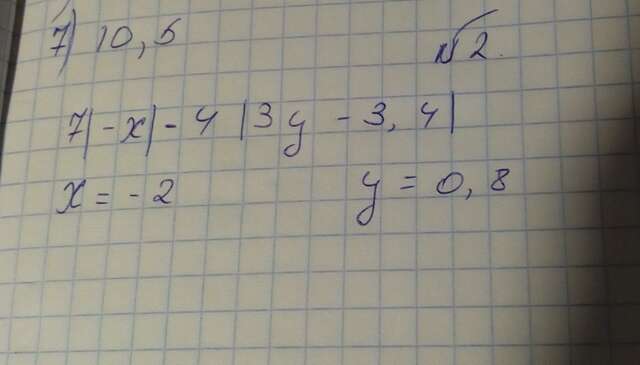 7) 10,5 №2.
7|-x|-4|3y-3,4|
x=-2 y=0,8